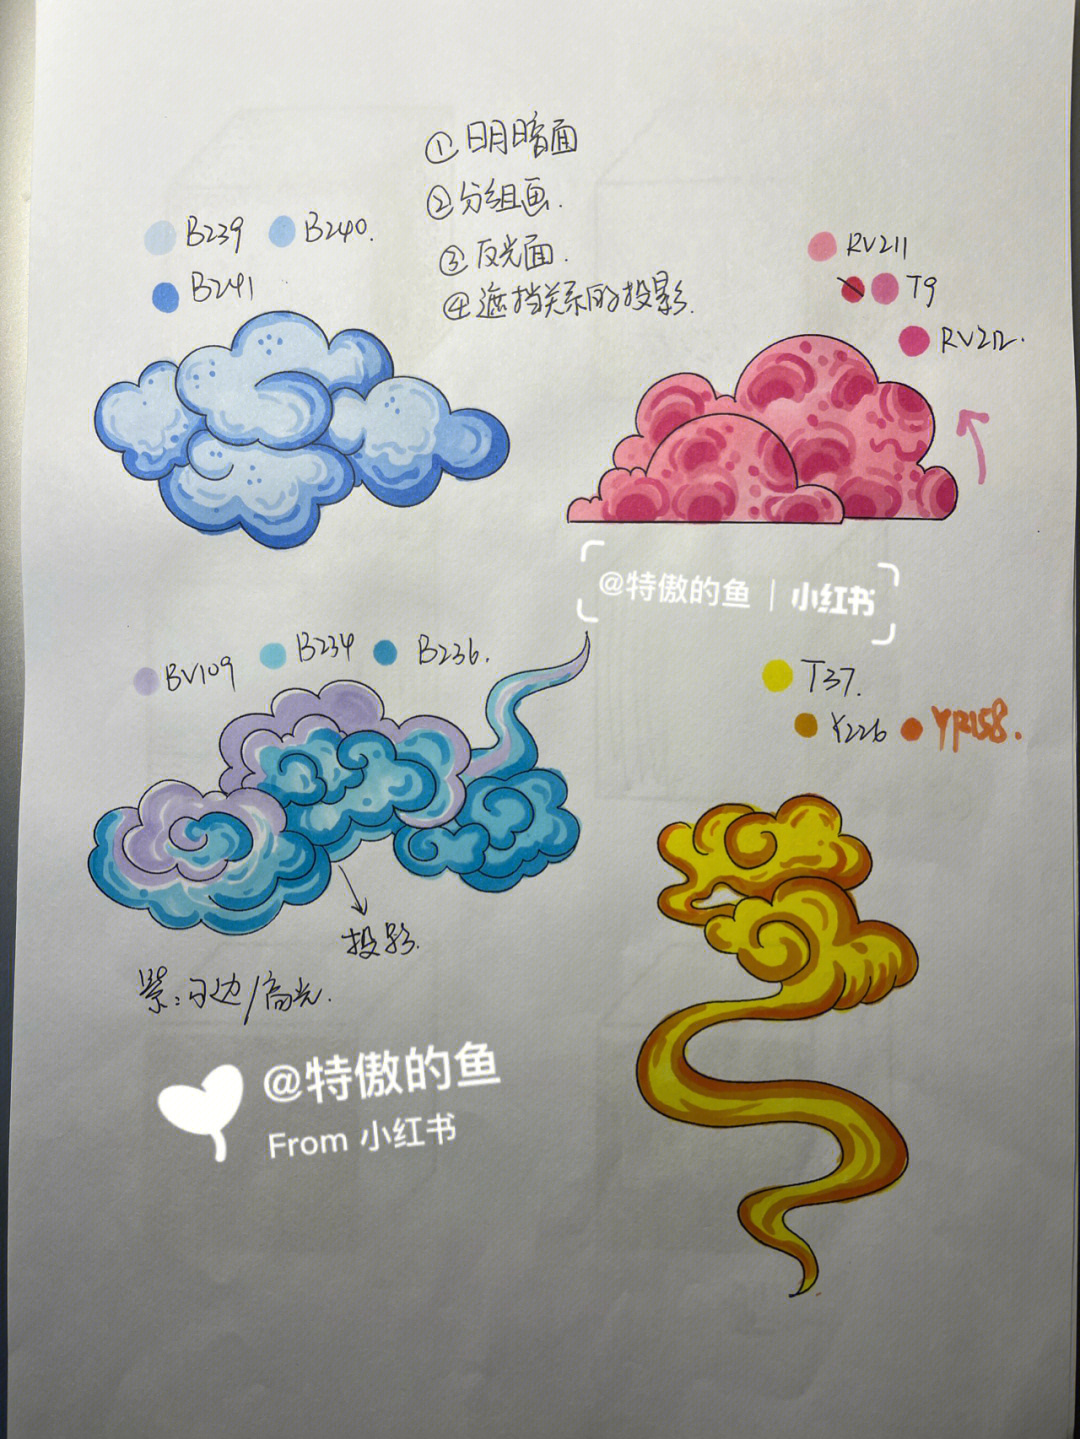 ①明暗面
②分组画.
③反光面.
④遮挡关系的投影.
B239 B240.
B241
RV211
T9
RV212.
@特傲的鱼 | 小红书
BV109 B234 B236.
T37.
Y226 YR158.
投影.
紫:勾边/高光.
@特傲的鱼
From 小红书